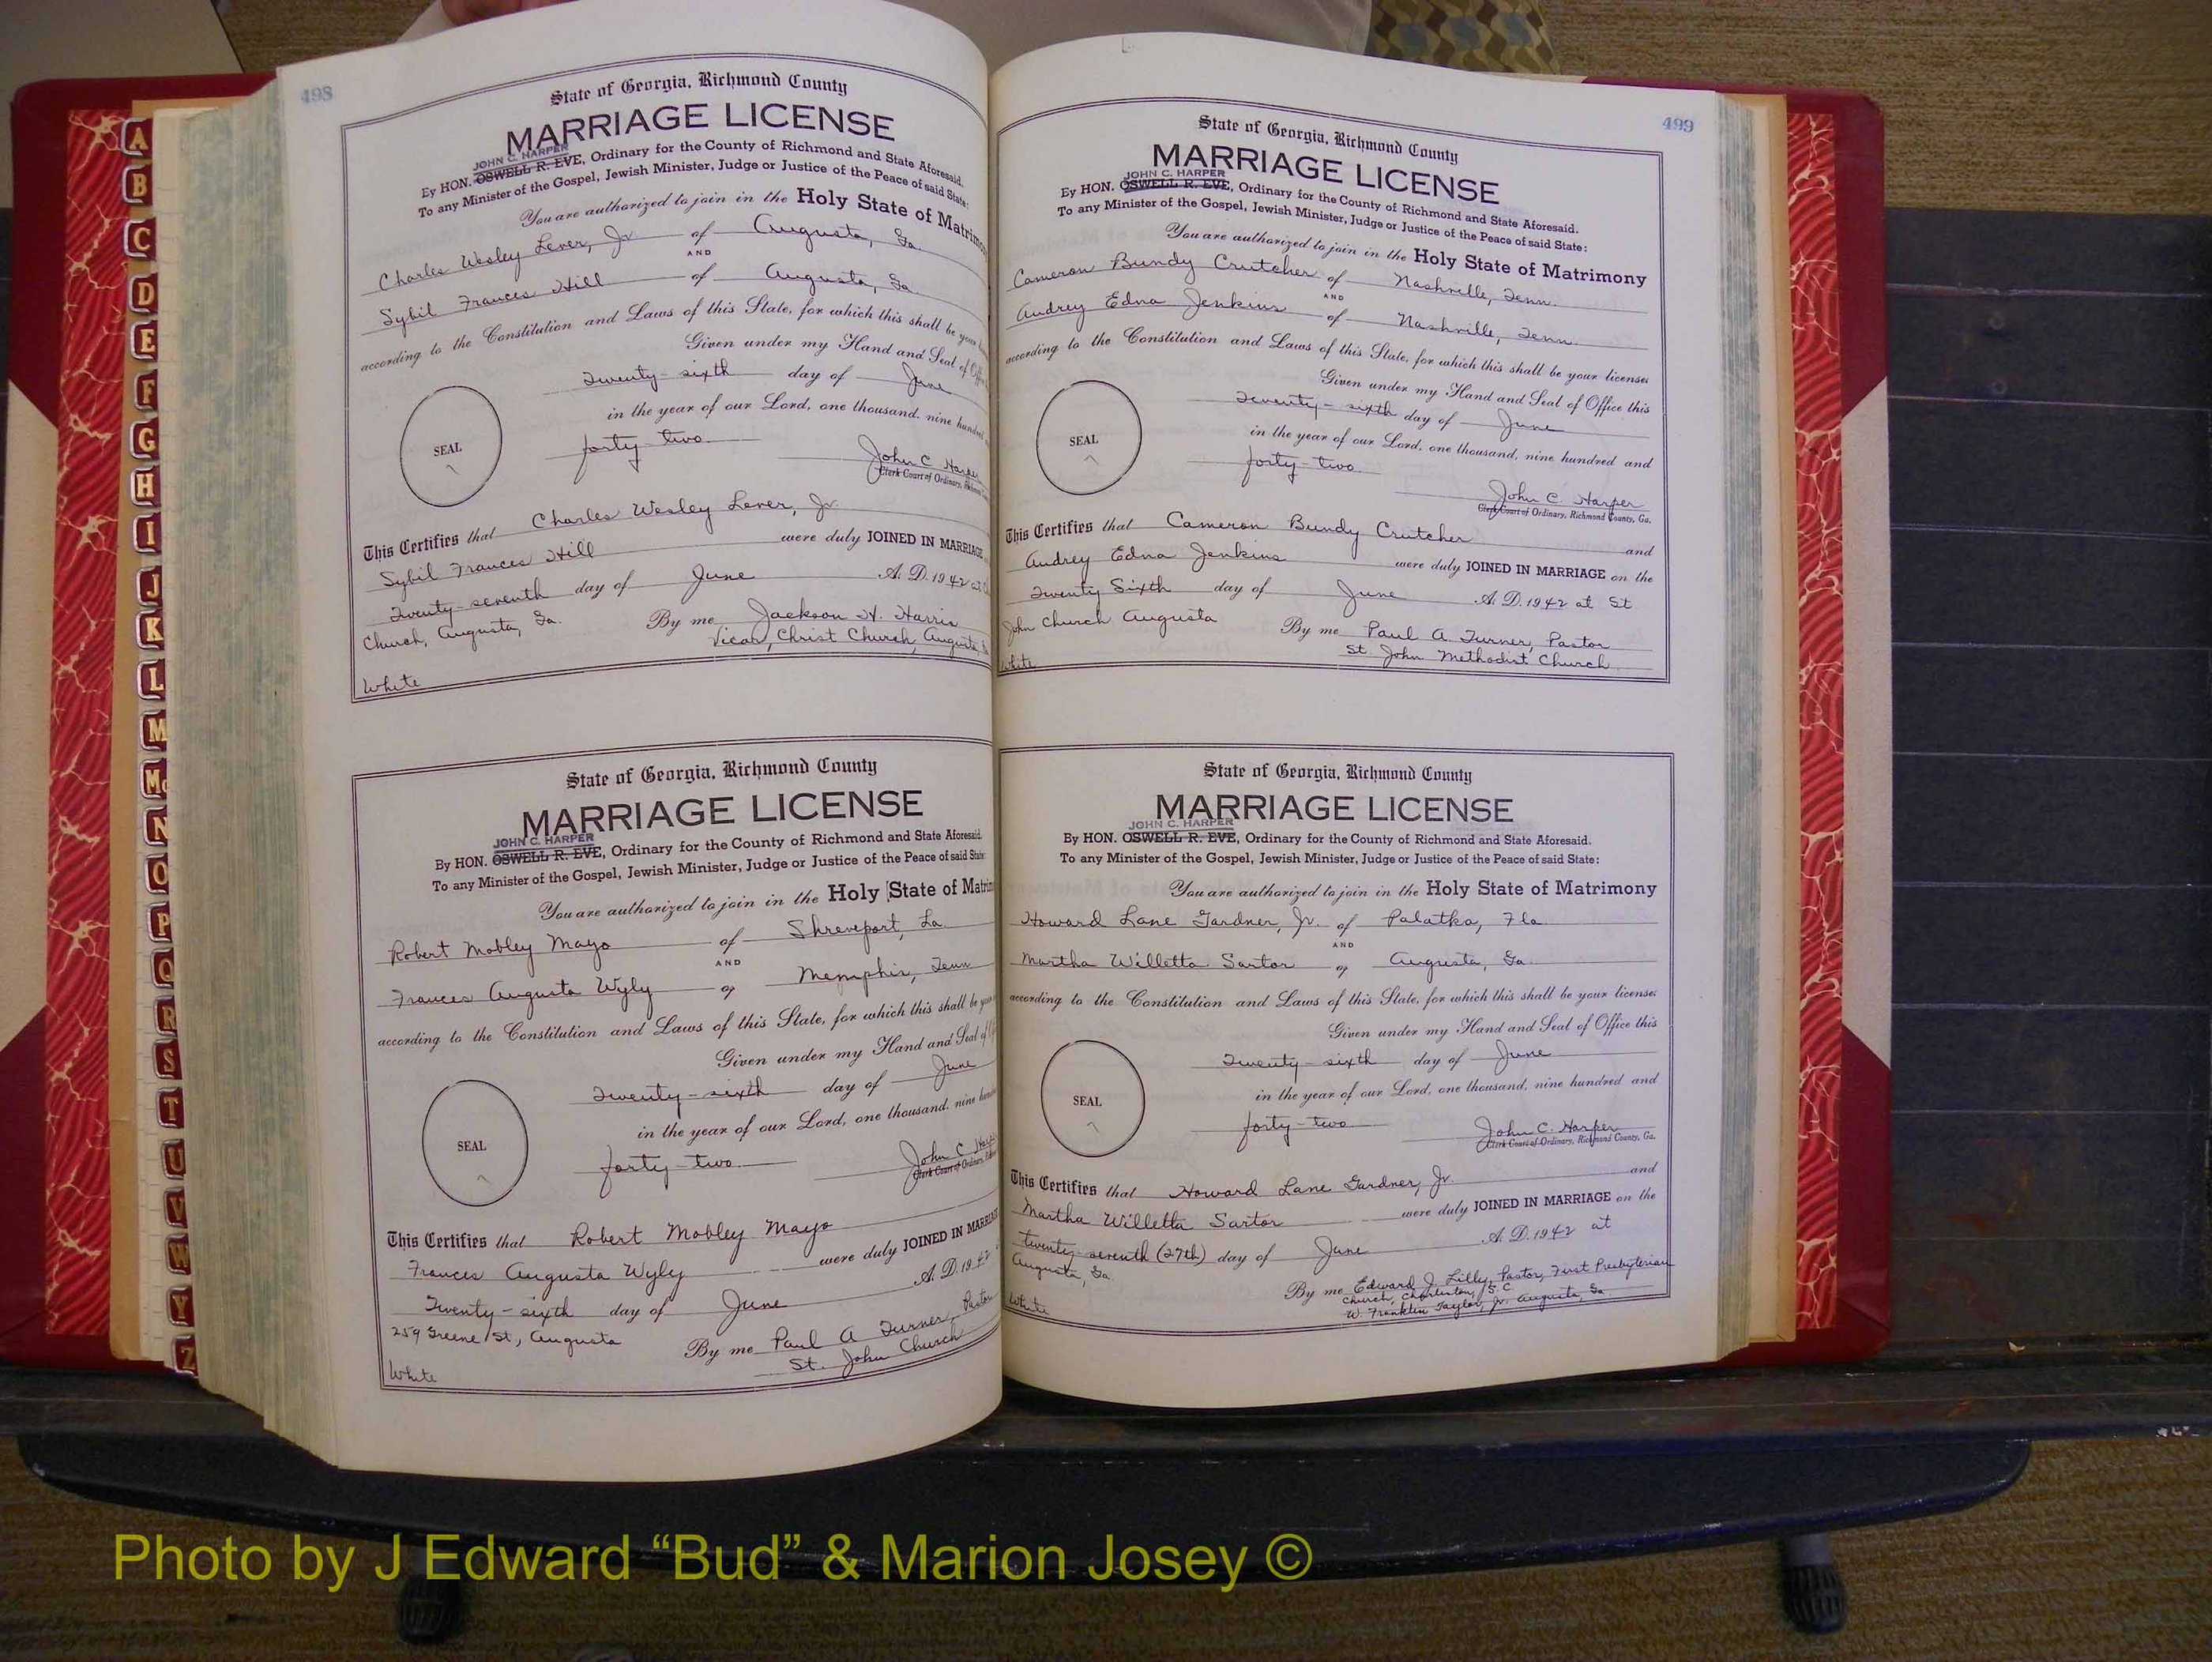 498
State of Georgia, Richmond County
MARRIAGE LICENSE
JOHN C. HARPER
By HON. OSWELL R. EVE, Ordinary for the County of Richmond and State Aforesaid.
To any Minister of the Gospel, Jewish Minister, Judge or Justice of the Peace of said State:
You are authorized to join in the Holy State of Matrimo
Charles Wesley Lever, Jr of Augusta, Ga.
AND
Sybil Frances Hill of Augusta, Ga.
according to the Constitution and Laws of this State, for which this shall be your
Given under my Hand and Seal of Off
Twenty-sixth day of June
in the year of our Lord, one thousand, nine hundred
SEAL
forty-two
John C Harper
Clerk Court of Ordinary,
This Certifies that Charles Wesley Lever, Jr.
Sybil Frances Hill were duly JOINED IN MARRIAGE
Twenty-seventh day of June A. D. 1942 at
Church, Augusta, Ga. By me Jackson H. Harris
Vicar, Christ Church, Augusta,
White
State of Georgia, Richmond County
MARRIAGE LICENSE
JOHN C. HARPER
By HON. OSWELL R. EVE, Ordinary for the County of Richmond and State Aforesaid.
To any Minister of the Gospel, Jewish Minister, Judge or Justice of the Peace of said State:
You are authorized to join in the Holy State of Matrim
Robert Mobley Mayo of Shreveport, La.
AND
Frances Augusta Wyly of Memphis, Tenn
according to the Constitution and Laws of this State, for which this shall be your
Given under my Hand and Seal of
Twenty-sixth day of June
in the year of our Lord, one thousand, nine
SEAL
forty-two
John C
Clerk Court of Ordinary,
This Certifies that Robert Mobley Mayo
Frances Augusta Wyly were duly JOINED IN MARRIAGE
Twenty-sixth day of June A. D. 1942
259 Greene St, Augusta By me Paul A Turner, Pastor
St. John Church
White
499
State of Georgia, Richmond County
MARRIAGE LICENSE
JOHN C. HARPER
By HON. OSWELL R. EVE, Ordinary for the County of Richmond and State Aforesaid.
To any Minister of the Gospel, Jewish Minister, Judge or Justice of the Peace of said State:
You are authorized to join in the Holy State of Matrimony
Cameron Bundy Crutcher of Nashville, Tenn.
AND
Audrey Edna Jenkins of Nashville, Tenn.
according to the Constitution and Laws of this State, for which this shall be your license:
Given under my Hand and Seal of Office this
Twenty-sixth day of June
in the year of our Lord, one thousand, nine hundred and
SEAL
forty-two
John C. Harper
Clerk Court of Ordinary, Richmond County, Ga.
This Certifies that Cameron Bundy Crutcher and
Audrey Edna Jenkins were duly JOINED IN MARRIAGE on the
Twenty Sixth day of June A. D. 1942 at St
John Church Augusta By me Paul A. Turner, Pastor
St John Methodist Church
White
State of Georgia, Richmond County
MARRIAGE LICENSE
JOHN C. HARPER
By HON. OSWELL R. EVE, Ordinary for the County of Richmond and State Aforesaid.
To any Minister of the Gospel, Jewish Minister, Judge or Justice of the Peace of said State:
You are authorized to join in the Holy State of Matrimony
Howard Lane Gardner, Jr. of Palatka, Fla.
AND
Martha Willetta Sartor of Augusta, Ga.
according to the Constitution and Laws of this State, for which this shall be your license:
Given under my Hand and Seal of Office this
Twenty-sixth day of June
in the year of our Lord, one thousand, nine hundred and
SEAL
forty-two
John C. Harper
Clerk Court of Ordinary, Richmond County, Ga.
This Certifies that Howard Lane Gardner, Jr. and
Martha Willetta Sartor were duly JOINED IN MARRIAGE on the
twenty-seventh (27th) day of June A. D. 1942 at
Augusta, Ga. By me Edward J. Lilly, Pastor, First Presbyterian
Church, Charleston, S. C.
W. Franklin Taylor, Jr. Augusta, Ga.
White
A
B
C
D
E
F
G
H
I
J
K
L
M
Mc
N
O
P
Q
R
S
T
U
V
W
Y
Z
Photo by J Edward “Bud” & Marion Josey ©